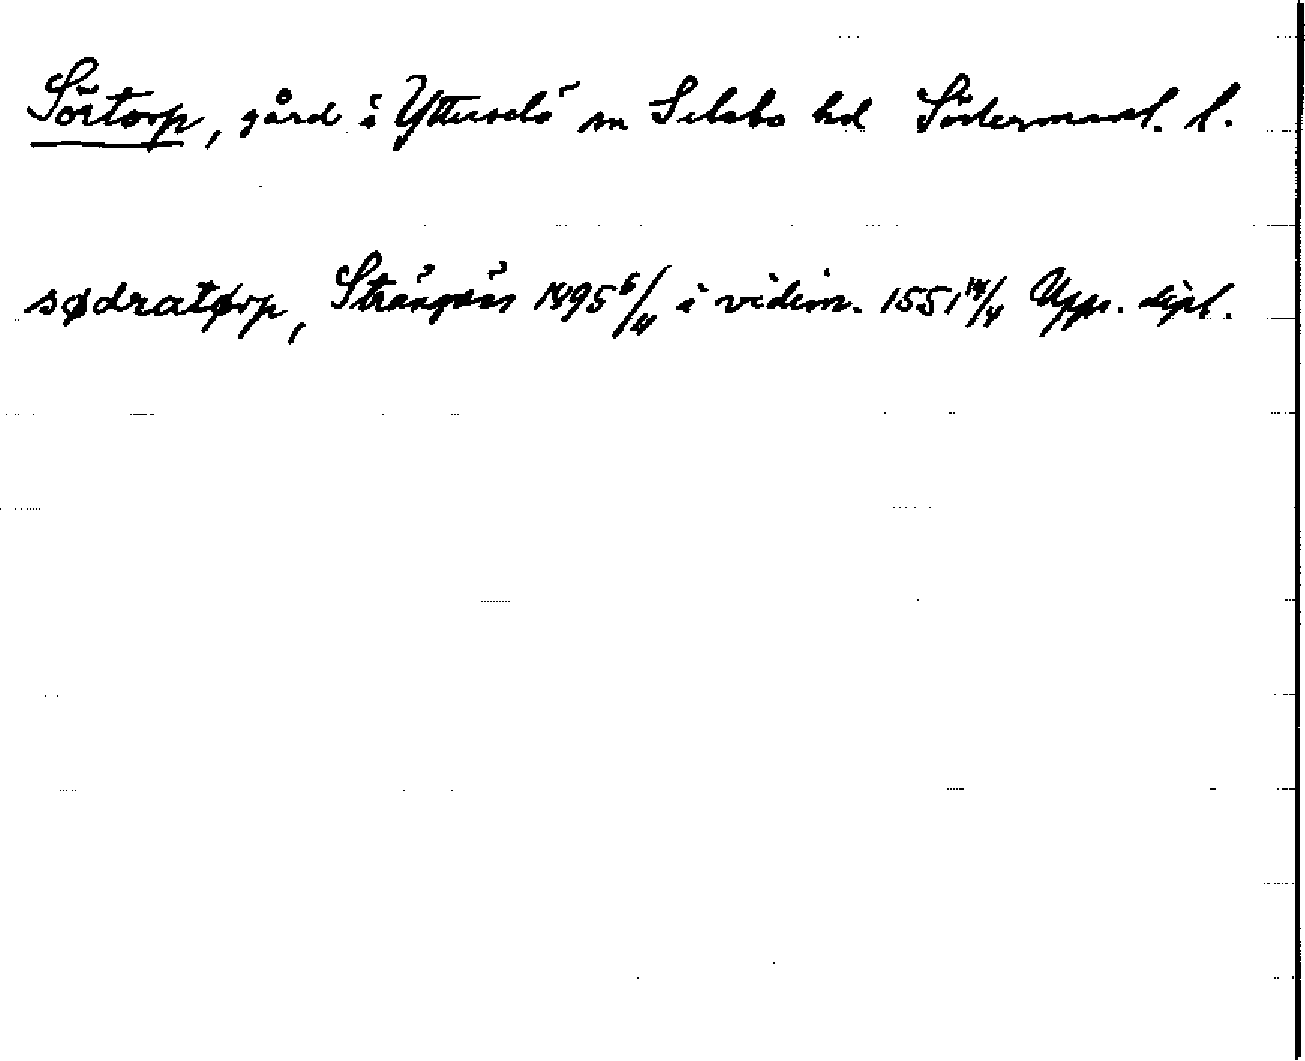 Sörtorp, gård i Ytterselö sn Selebo hd Södermanl. l.
sødratørp, Strängnäs 1495 6/4 i vidim. 1551 14/4 Upps. dipl.